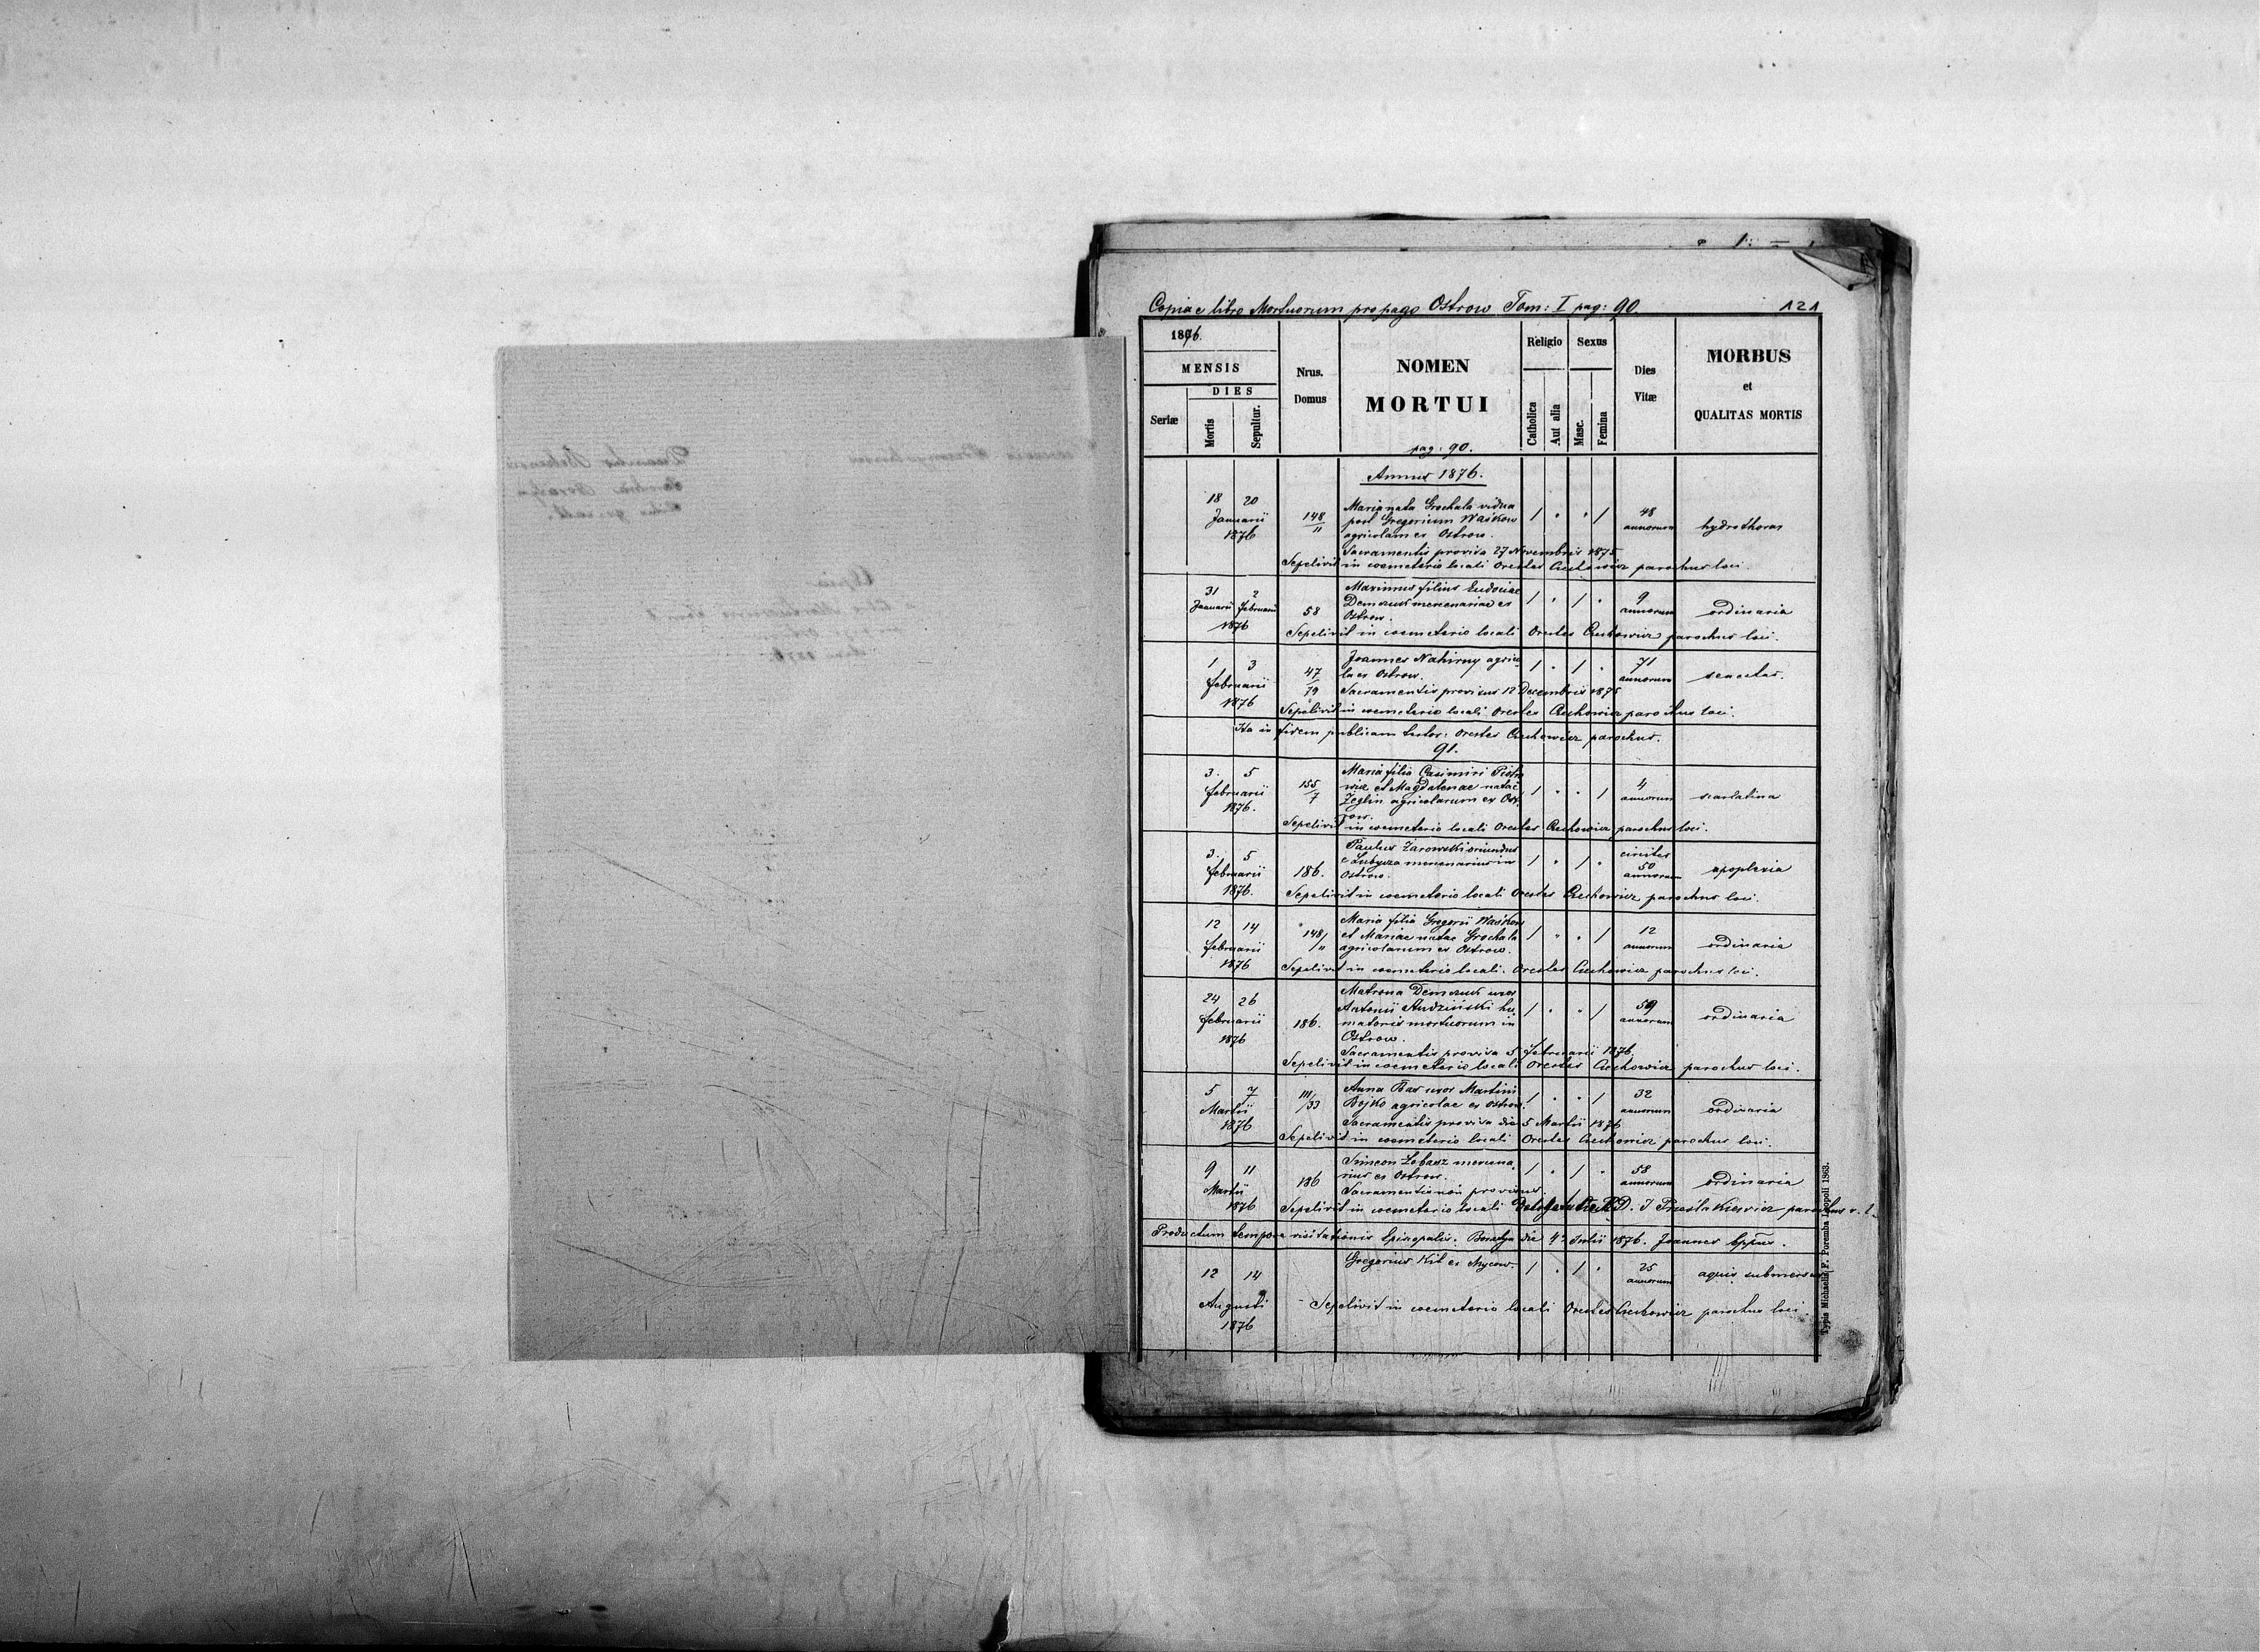 Copia e libro Mortuorum pro pago Ostrow Tom: I pag: 90.
121
1876.
MENSIS
DIES
Seriæ
Mortis
Sepultur.
Nrus.
Domus
NOMEN
MORTUI
Religio
Catholica
Aut alia
Sexus
Masc.
Femina
Dies
Vitæ
MORBUS
et
QUALITAS MORTIS
pag: 90.
Annus 1876.
18 20
Januarii
1876
148
11
Maria nata Grochala vidua
post Gregorium Waśkow
agricolam ex Ostrow.
/ " " /
48
annorum
hydrothorax
Sacramentis provisa 27 Novembris 1875
Sepelivit in coemeterio locali Orestes Czechowicz parochus loci.
31 2
Januarii Februarii
1876
58
Maximus filius Eudociae
Demczuk mercenariae ex
Ostrow.
/ " / "
9
annorum
ordinaria
Sepelivit in coemeterio locali Orestes Czechowicz parochus loci.
1 3
Februarii
1876
47
79
Joannes Nahirny agrico
la ex Ostrow.
/ " / "
71
annorum
senectus.
Sacramentis provisus 12 Decembris 1875
Sepelivit in coemeterio locali Orestes Czechowicz parochus loci.
Ita in fidem publicam testor: Orestes Czechowicz parochus.
91.
3. 5
Februarii
1876.
155
7
Maria filia Casimiri Piotro
wicz et Magdalenae natae
Żeglin agricolarum ex Ost
row.
/ " " /
4
annorum
scarlatina
Sepelivit in coemeterio locali Orestes Czechowicz parochus loci.
3. 5
Februarii
1876.
186.
Paulus Żarowski oriundus
e Lubycza mercenarius in
Ostrow.
/ " / "
circiter
50
annorum
apoplexia
Sepelivit in coemeterio locali Orestes Czechowicz parochus loci.
12 14
Februarii
1876
148/
11
Maria filia Gregorii Waśkow
et Mariae natae Grochala
agricolarum ex Ostrow.
/ " " /
12
annorum
ordinaria
Sepelivit in coemeterio locali. Orestes Czechowicz parochus loci.
24 26
Februarii
1876
186.
Matrona Demczuk uxor
Antonii Audziński hu
matoris mortuorum in
Ostrow.
/ " " /
59
annorum
ordinaria
Sacramentis provisa 5 Februarii 1876.
Sepelivit in coemeterio locali Orestes Czechowicz parochus loci.
5 7
Martii
1876
111/
33
Anna Bas uxor Martini
Bojko agricolae ex Ostrow.
/ " " /
32
annorum
ordinaria
Sacramentis provisa die 5 Martii 1876
Sepelivit in coemeterio locali Orestes Czechowicz parochus loci.
9 11
Martii
1876
186
Simeon Łobasz mercena
rius ex Ostrow.
/ " / "
58
annorum
ordinaria
Sacramentis non provisus.
Sepelivit in coemeterio locali R. D. J parochus v. l.
Productum tempore visitationis Episcopalis. die 4° Julii 1876. Joannes Eppus.
12 14
Augusti
1876
Gregorius Kit ex Mycow.
/ " / "
25
annorum
aquis submersus
Sepelivit in coemeterio locali Orestes Czechowicz parochus loci.
Typis Michaelis F. Poremba Leopoli 1863.